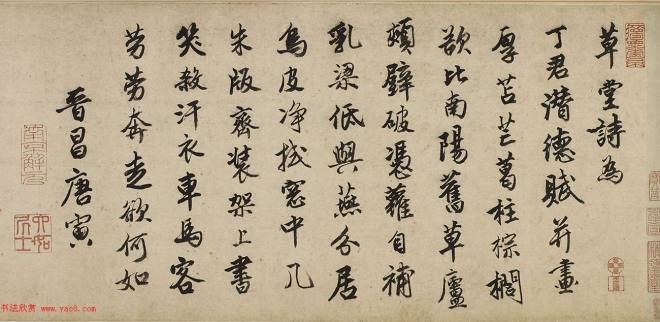 草堂詩為
丁君潛德賦并畫
厚苫芒葛柱棕櫚
欲比南陽舊草廬
頹壁破憑蘿自補
乳梁低與燕分居
烏皮净拭窓中几
朱版齊裝架上書
笑殺汗衣車馬客
劳劳奔走欲何如
晋昌唐寅
书法欣赏
www.yac8.com